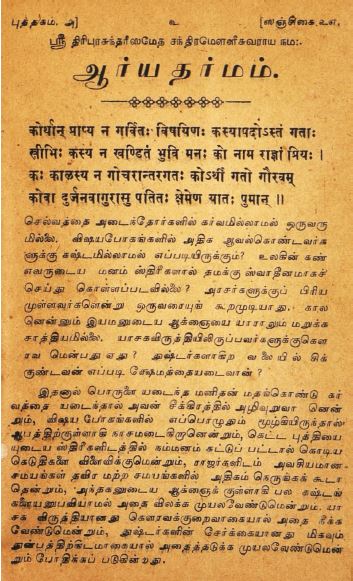 புத்தகம். அ] உ [ஸஞ்சிகை.உஎ.
ஸ்ரீ திரிபுரசுந்தரீஸமேத சந்திரமௌளீசுவராய நம:
ஆர்யதர்மம்.
कोर्थान् प्राप्य न गर्वितः विषयिणः कस्यापदोऽस्तं गताः
स्त्रीभिः कस्य न खण्डितं भुवि मनः को नाम राज्ञां प्रियः ।
कः कालस्य न गोचरान्तरगतः कोऽर्थी गतो गौरवम्
कोवा दुर्जनवागुरासु पतितः क्षेमेण यातः पुमान् ॥
செல்வத்தை அடைந்தோர்களில் கர்வமில்லாமல் ஒருவரு
மில்லை. விஷயபோகங்களில் அதிக ஆவல்கொண்டவர்க
ளுக்கு கஷ்டமில்லாமல் எப்படியிருக்கும்? உலகின் கண்
எவருடைய மனம் ஸ்திரீகளால் தமக்கு ஸ்வாதீனமாகச்
செய்து கொள்ளப்படவில்லை? அரசர்களுக்குப் பிரிய
முள்ளவர்களென்று ஒருவரையுங் கூறமுடியாது. கால
னென்னும் இயமனுடைய ஆக்ஞையை யாராலும் மறுக்க
சாத்தியமில்லை. யாசகவிருத்தியிலிருப்பவர்களுக்குகௌ
ரவ மென்பது ஏது? துஷ்டர்களாகிற வலையில் சிக்
குண்டவன் எப்படி க்ஷேமத்தையடைவான்?
இதனால் பொருளை யடைந்த மனிதன் மதங்கொண்டு கர்
வத்தை யடைந்தால் அவன் சீக்கிரத்தில் அழிவுறுவா னென்
றும், விஷய போகங்களில் எப்பொழுதும் மூழ்கியிருந்தால்
ஆபத்திற்குள்ளாகி நாசமடைகிறானென்றும், கெட்ட புத்தியை
யுடைய ஸ்திரீகளிடத்தில் நம்மனம் கட்டுப் பட்டால் கொடிய
கெடுதிகளை விளைவிக்குமென்றும், ராஜர்களிடம் அவசியமான
சமயங்கள் தவிர மற்ற சமயங்களில் அதிகம் நெருங்கக் கூடா
தென்றும், அந்தகனுடைய ஆக்ஞைக் குள்ளாகி பல கஷ்டங்
களையனுபவியாமல் அதை விலக்க முயலவேண்டுமென்றும். யா
சக விருத்தியானது கௌரவக்குறைவாகையால் அதை நீக்க
வேண்டுமென்றும், துஷ்டர்களின் சேர்க்கையானது மிகவும்
துன்பத்திற்கிடமாகையால் அதைத்தடுக்க முயலவேண்டுமென்
றும் போதிக்கப் படுகின்றது.